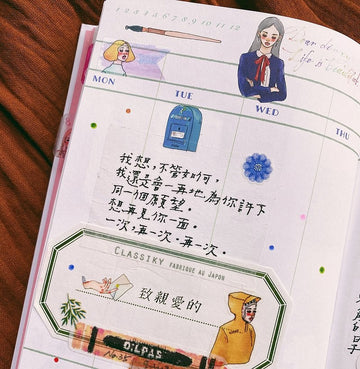 1 2 3 4 5 6 7 8 9 10 11 12
Dear
Life
MON
TUE
WED
THU
我想,不管如何,
我還是會一再地為你許下
同一個願望。
想再見你一面。
一次,再一次。再一次。
CLASSIKY FABRIQUÉ AU JAPON
致親愛的
OILPAS
的
日
子